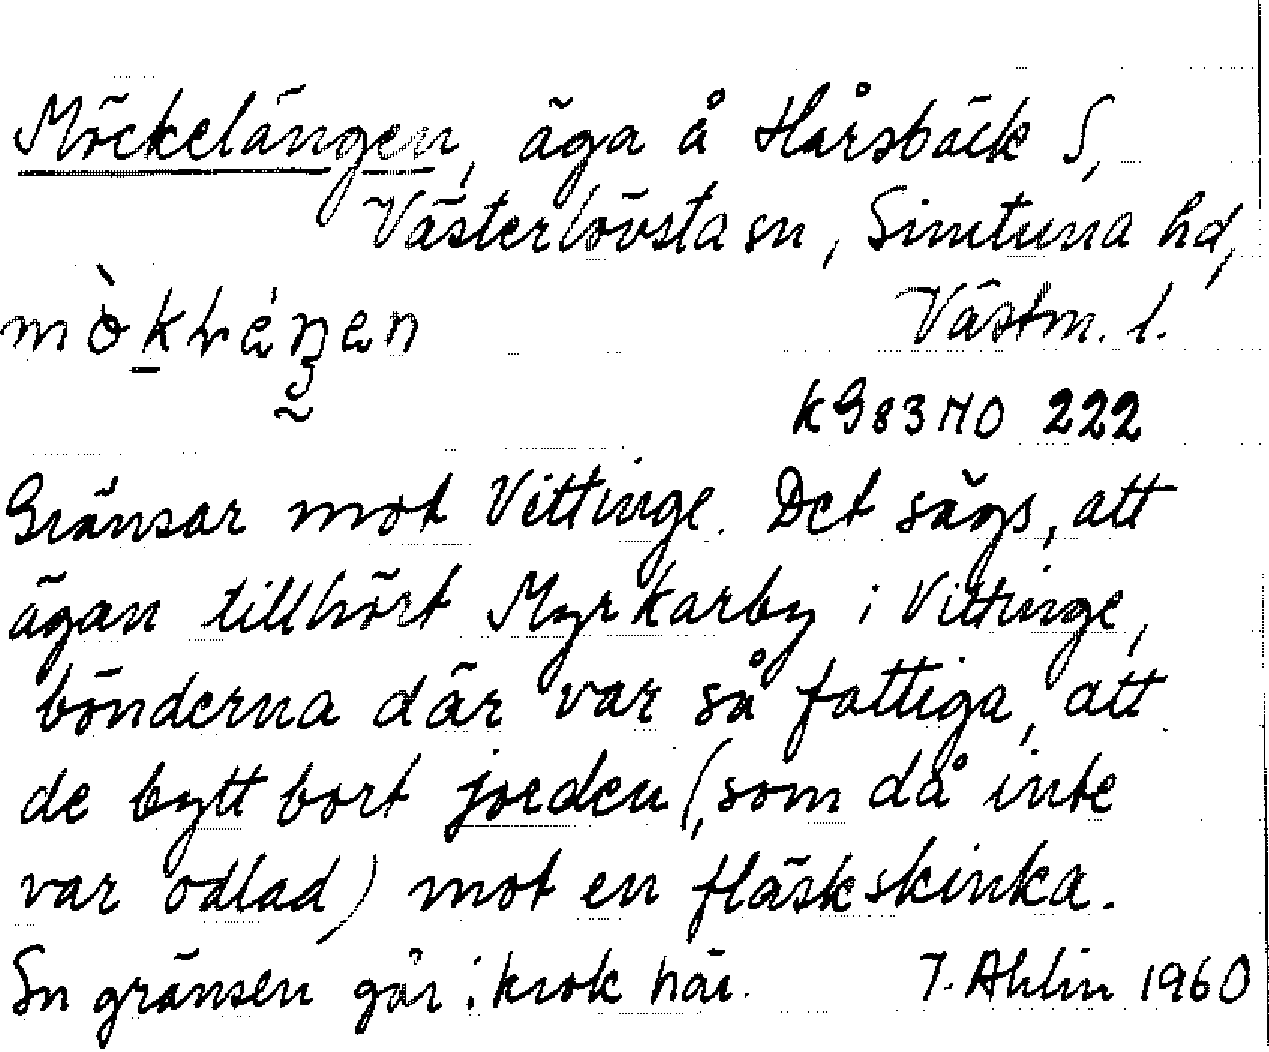 Möckelängen, äga å Hårsbäck S,
Västerlövsta sn, Simtuna hd,
Västm. l.
KG83NO 222
Gränsar mot Vittinge. Det sägs, att
ägan tillhört Myrkarby i Vittinge,
bönderna där var så fattiga, att
de bytt bort jorden (, som då inte
var odlad) mot en fläskskinka.
Sn gränsen går i krok här. T. Ahlin 1960